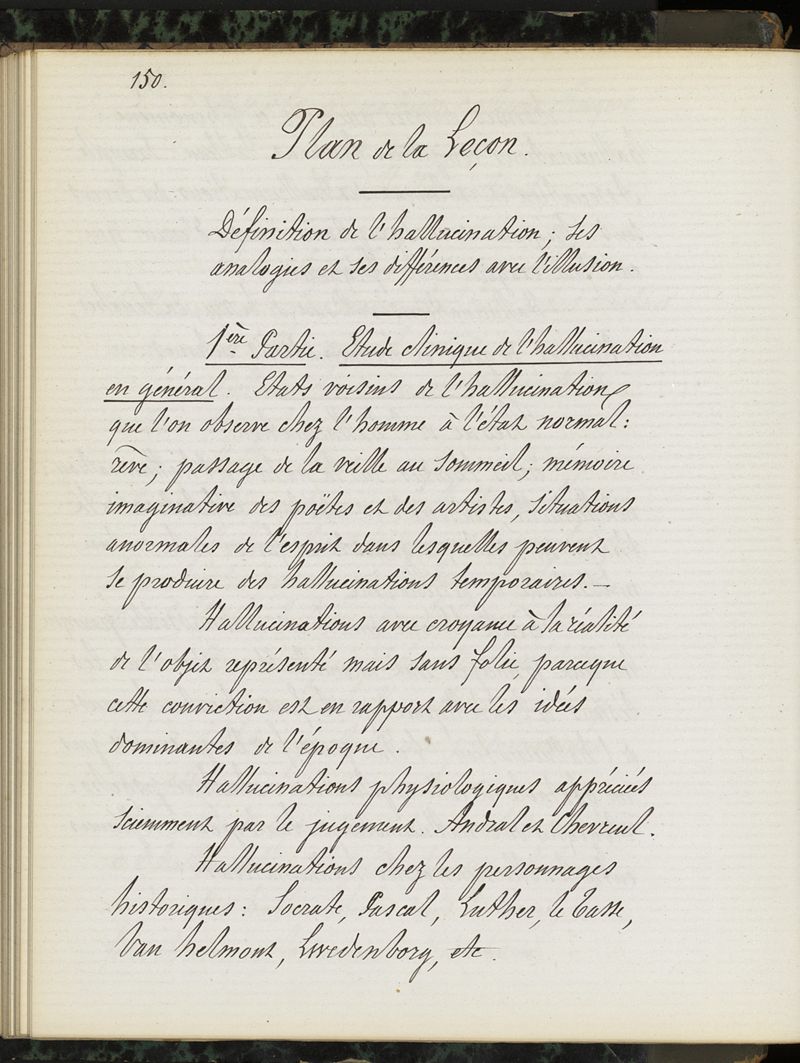 150.
Plan de la Leçon.
Définition de l'hallucination ; ses
analogies et ses différences avec l'illusion.
1ère Partie. Etude clinique de l'hallucination
en général. Etats voisins de l'hallucination
que l'on observe chez l'homme à l'état normal :
rêve ; passage de la veille au sommeil ; mémoire
imaginative des poëtes et des artistes, situations
anormales de l'esprit dans lesquelles peuvent
se produire des hallucinations temporaires. —
Hallucinations avec croyance à la réalité
de l'objet représenté mais sans folie, parceque
cette conviction est en rapport avec les idées
dominantes de l'époque.
Hallucinations physiologiques appréciées
sciemment par le jugement. Andral et Chevreul.
Hallucinations chez les personnages
historiques : Socrate, Pascal, Luther, le Tasse,
Van helmont, Swedenborg, etc.